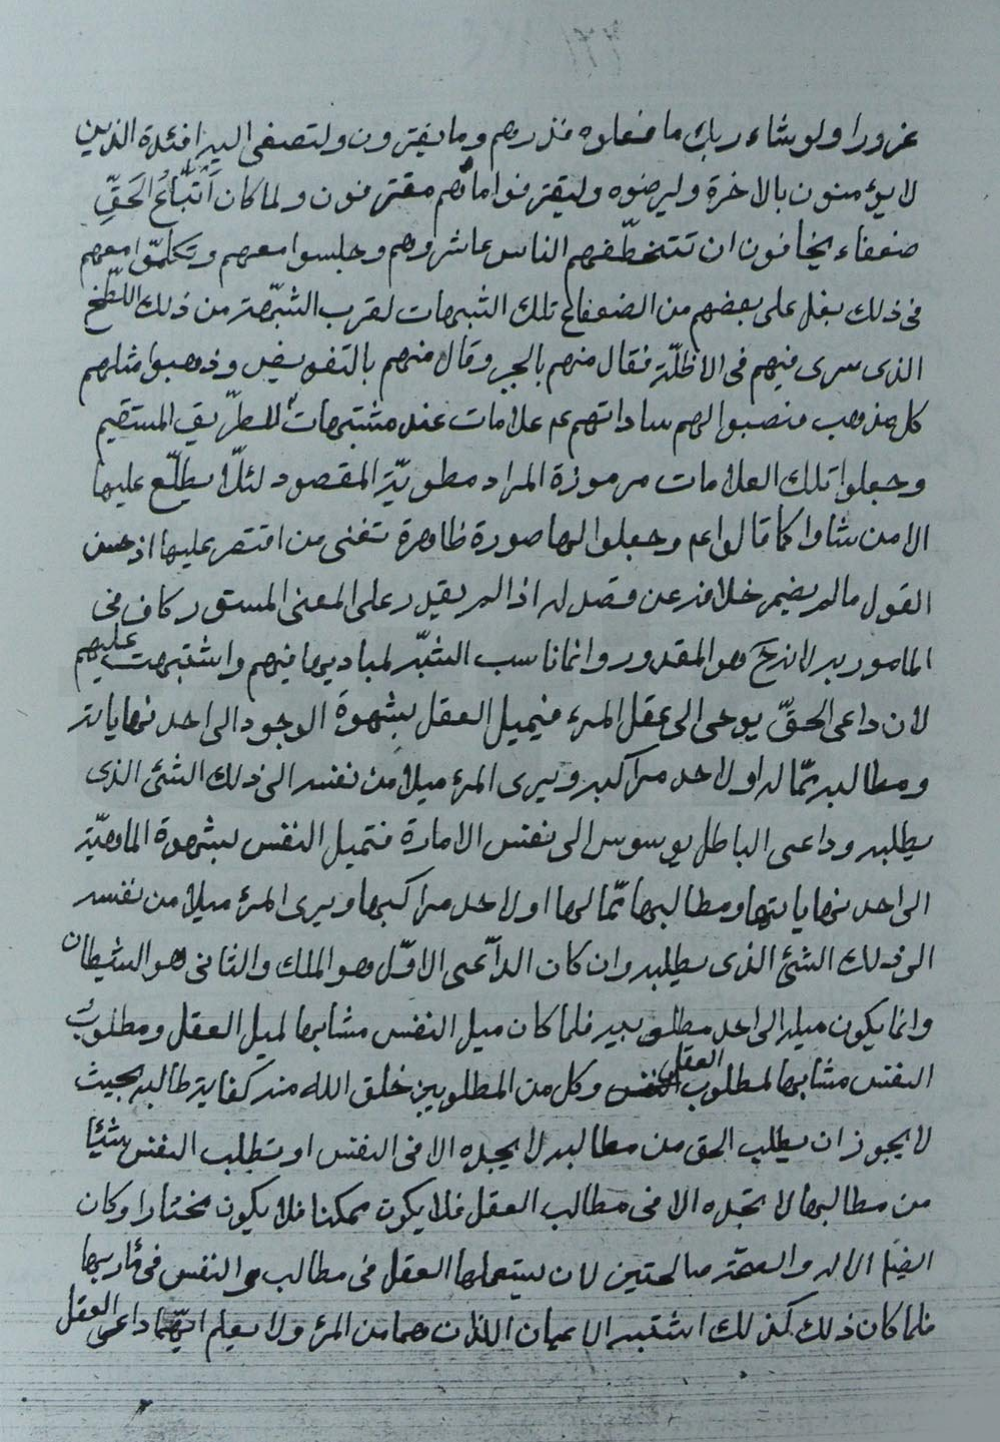 غرورا ولو شاء ربك ما فعلوه فذرهم وما يفترون ولتصغى اليه افئدة الذين
لا يؤمنون بالاخرة وليرضوه وليقترفوا ما هم مقترفون ولما كان اَتْبَاعُ الحَقِّ
ضعفاء يخافون ان تتخطّفهم الناس عاشروهم وجلسوا معهم وتكلّموا معهم
فى ذلك بغل على بعضهم من الضعفاء تلك الشبهات لقرب الشبهة من ذلك اللّطخ
الذى سرى فيهم فى الاظلّة فقال منهم بالجبر وقال منهم بالتفويض وذهبوا مثلهم
كل مذهب فنصبوا لهم ساداتهم عم علامات عند مشتبهات الطّريق المستقيم
وجعلوا تلك العلامات مرموزة المراد مطويّة المقصود لئلّا يطلّع عليها
الا من شاؤا كما قالوا عم وجعلوا لها صورة ظاهرة تغنى من اقتصر عليها اذ حسن
القول ما لم يضمر خلافه عن قصد له اذا لم يقدر على المعنى المستور كاف فى
المامور به لانه ح هو المقدور وانما ناسب الشبه لمباديها فيهم واشتبهت عليهم
لان داعى الحقّ يوحى الى عقل المرء فيميل العقل بشهوة الوجود الى احد نهاياته
ومطالبه ممّا له او لاحد مراكبه ويرى المرء ميلا من نفسه الى ذلك الشئ الذى
يطلبه وداعى الباطل يوسوس الى نفس الامارة فتميل النفس بشهوة الماهيّة
الى احد نهاياتها ومطالبها ممّا لها او لاحد مراكبها ويرى المرء ميلا من نفسه
الى ذلك الشئ الذى يطلبه وان كان الدّاعى الاوّل هو الملك والثانى هو الشيطان
وانما يكون ميله الى احد مطلوبيه فلما كان ميل النفس مشابها لميل العقل ومطلوب
النفس مشابها لمطلوب العقل وكل من المطلوبين خلق الله منه كفاية طالبه بحيث
لا يجوز ان يطلب الحق من مطالبه لا يجده الا فى النفس او تطلب النفس شيئا
من مطالبها لا تجده الا فى مطالب العقل فلا يكون ممكنا فلا يكون مختارا وكان
ايضا الاله والصحّة صالحتين لان يستعملها العقل فى مطالبه والنفس فى مآربها
فلما كان ذلك كذلك اشتبه الداعيان اللذان هما من المرء ولا يعلم ايّهما داعى العقل